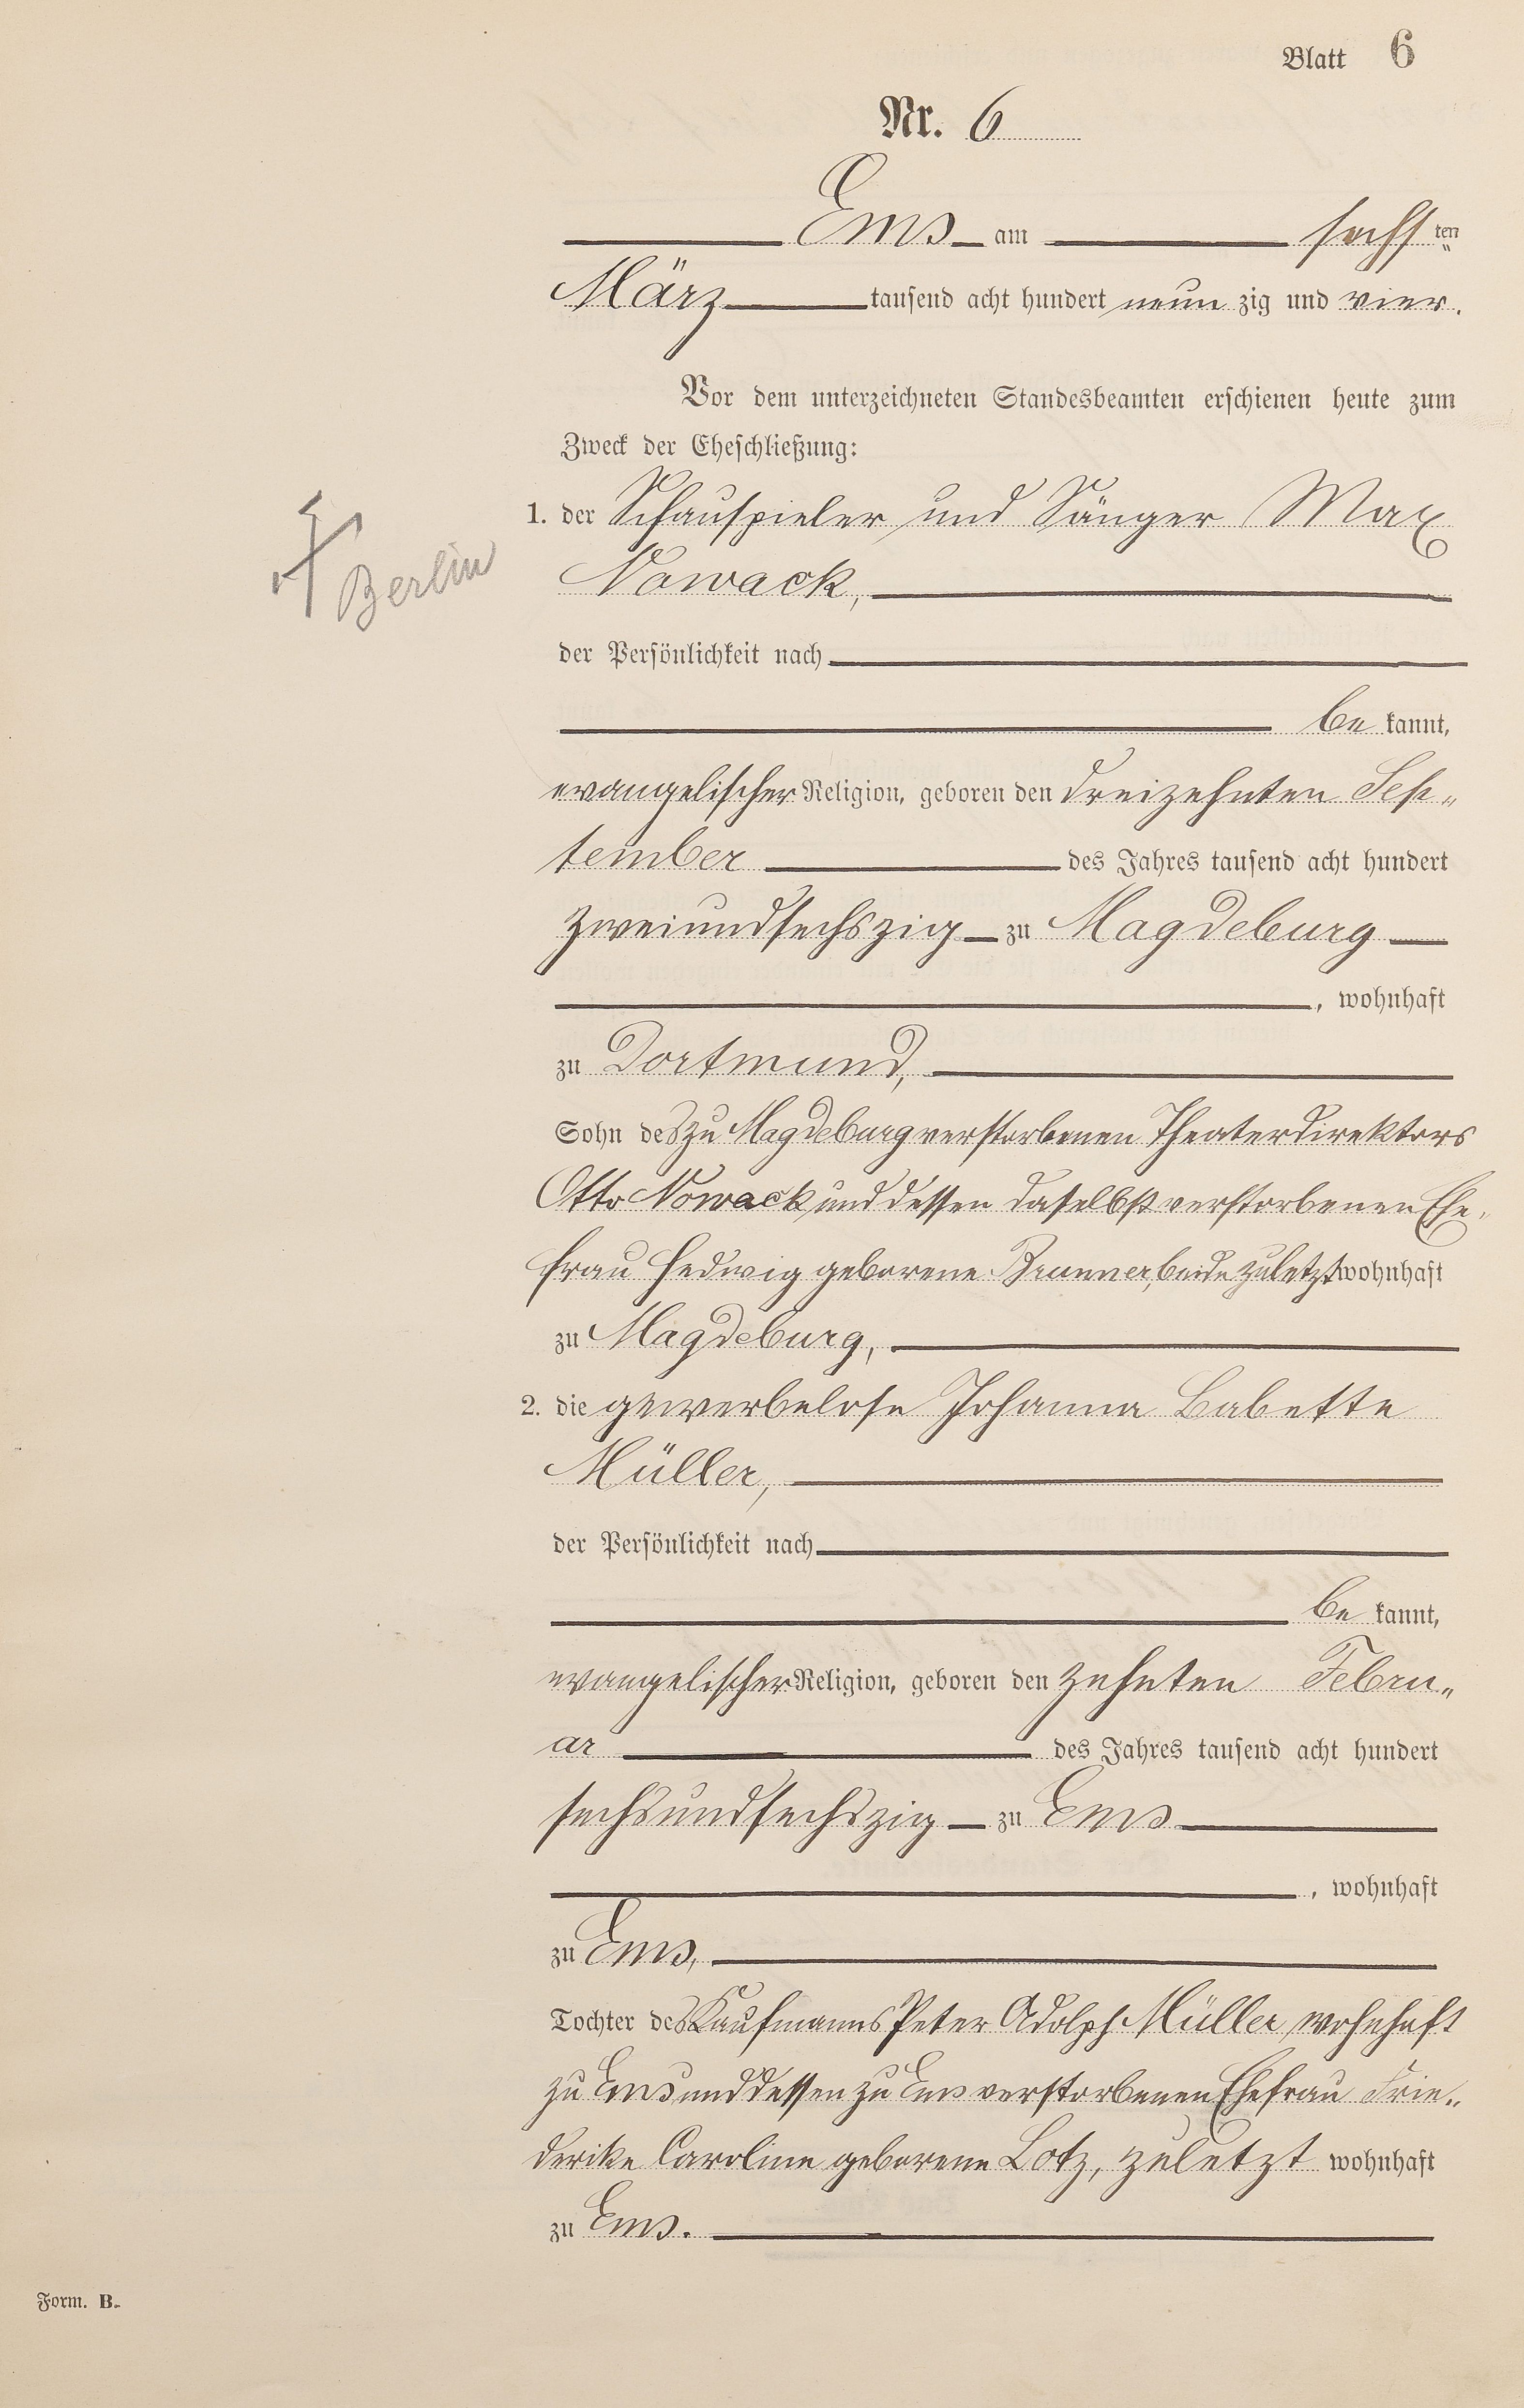 Blatt 6
Nr. 6
Ems am sechsten
März tausend acht hundert neun zig und vier.
Vor dem unterzeichneten Standesbeamten erschienen heute zum
Zweck der Eheschließung:
1. der Schauspieler und Sänger Max
Nowack,
Berlin
der Persönlichkeit nach
be kannt,
evangelischer Religion, geboren den dreizehnten Sep„
tember des Jahres tausend acht hundert
zweiundsechszig zu Magdeburg
, wohnhaft
zu Dortmund,
Sohn des zu Magdeburg verstorbenen Theaterdirektors
Otto Nowack und dessen daselbst verstorbenen Ehe„
frau Hedwig geborene Brunner, beide zuletzt wohnhaft
zu Magdeburg,
2. die gewerbelose Johanna Babette
Müller,
der Persönlichkeit nach
be kannt,
evangelischer Religion, geboren den zehnten Febru„
ar des Jahres tausend acht hundert
sechsundsechszig zu Ems
, wohnhaft
zu Ems,
Tochter des Kaufmanns Peter Adolph Müller wohnhaft
zu Ems und dessen zu Ems verstorbenen Ehefrau Frie„
derike Caroline geborene Lotz, zuletzt wohnhaft
zu Ems.
Form. B.